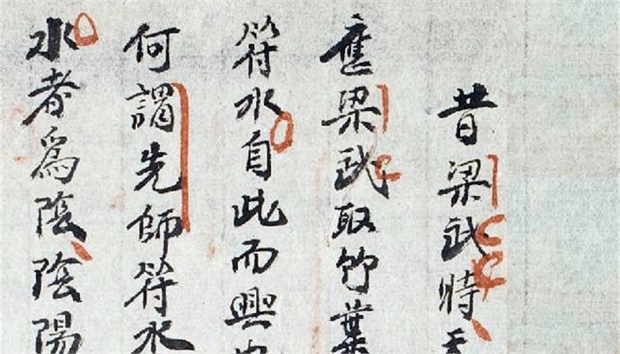 昔梁武時
應梁武取竹葉
符水自此而興
何謂先師符水
水者為陰陰陽